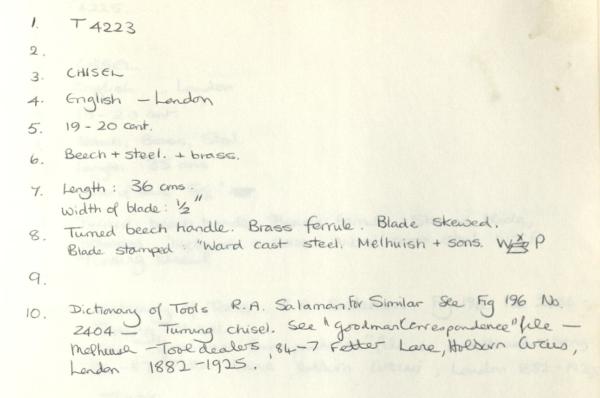 1. T 4223
2.
3. CHISEL
4. English - London
5. 19-20 cent.
6. Beech + steel. + brass.
7. Length: 36 cms.
Width of blade: ½"
8. Turned beech handle. Brass ferrule. Blade skewed.
Blade stamped: "Ward cast steel. Melhuish + sons. W P
9.
10. Dictionary of Tools R.A. Salaman. For Similar See Fig 196 No.
2404 - Turning chisel. See "Goodman Correspondence" file -
Melhuish - Tool dealers, 84-7 Fetter Lane, Holborn Circus,
London 1882-1925.